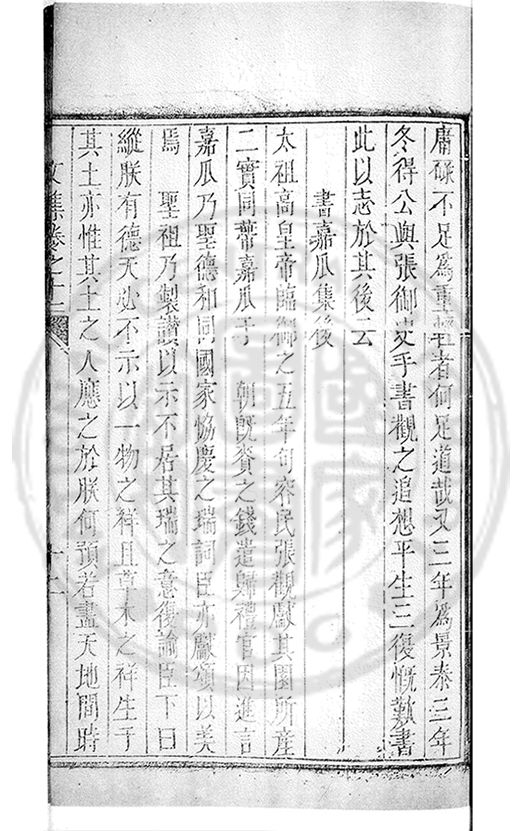 庸碌不足爲重輕者何足道哉又三年爲景泰三年
冬得公與張御史手書觀之追想平生三復慨歎書
此以志於其後云
書嘉瓜集後
太祖高皇帝臨御之五年句容民張觀獻其園所產
二實同蔕嘉瓜于 朝既賚之錢遣歸禮官因進言
嘉瓜乃聖德和同國家恊慶之瑞詞臣亦獻頌以美
焉 聖祖乃製讚以示不居其瑞之意復諭臣下曰
縱朕有德天必不示以一物之祥且草木之祥生于
其土亦惟其土之人應之於朕何預若盡天地間時
文集卷之十二 十二